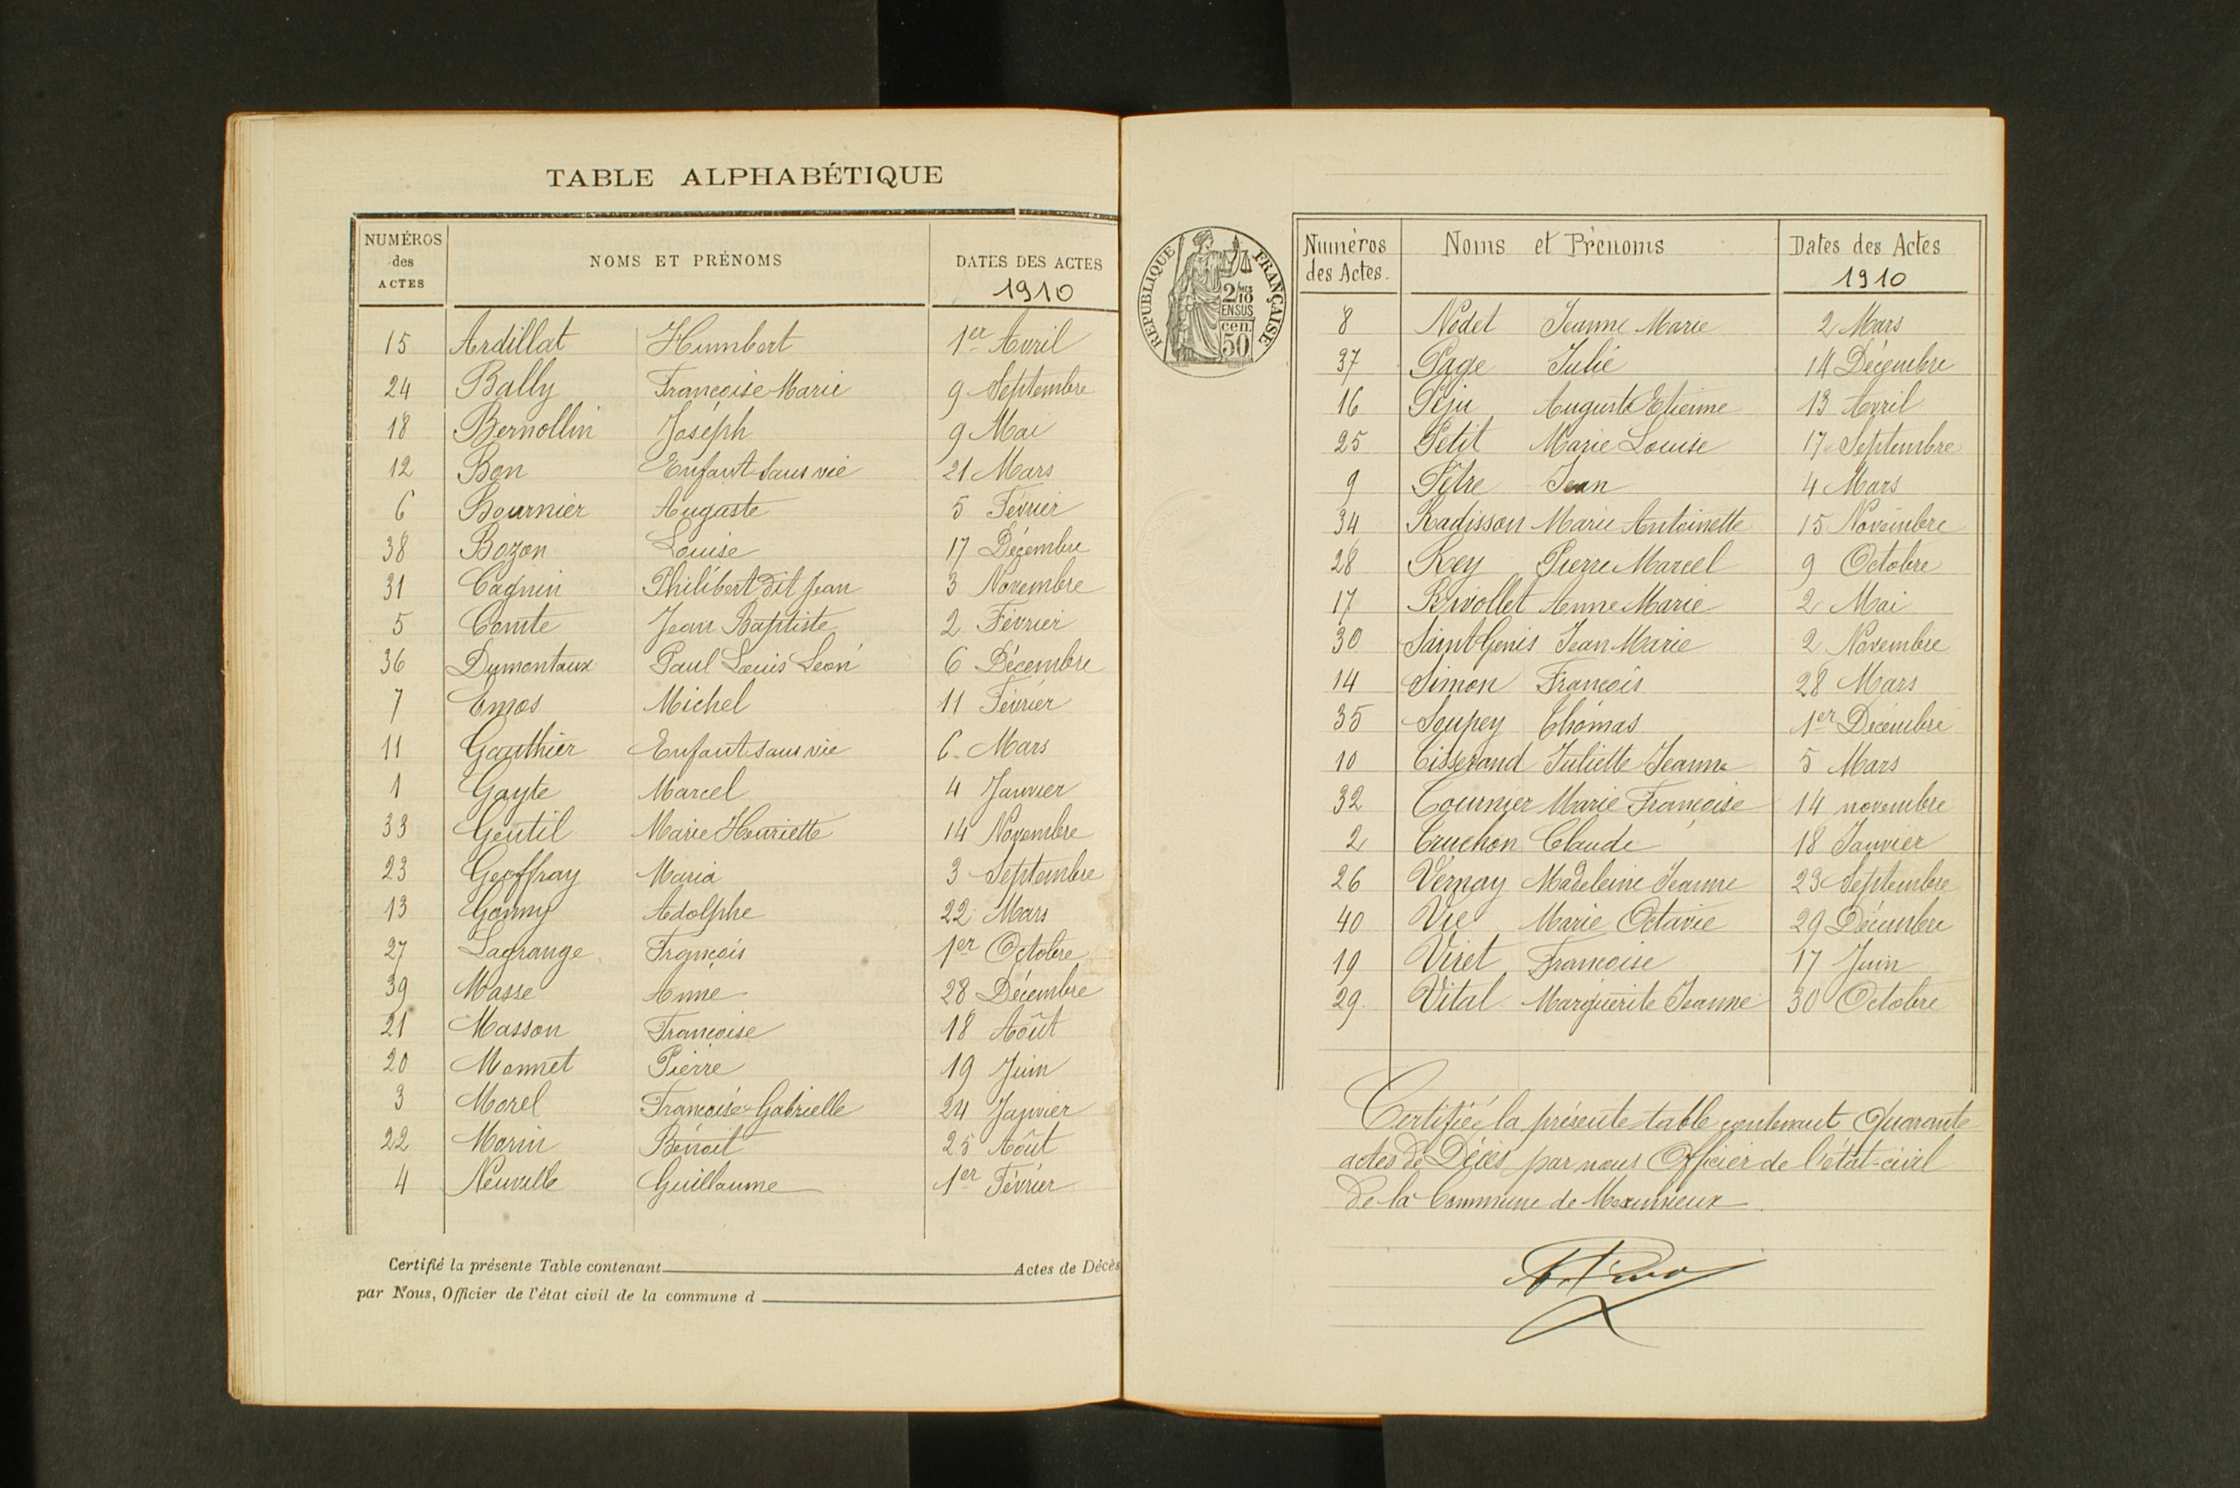 TABLE ALPHABÉTIQUE
NUMÉROS des ACTES
NOMS ET PRÉNOMS
DATES DES ACTES
1910
15 Ardillat Humbert 1er Avril
24 Bally Françoise Marie 9 Septembre
18 Bernollin Joseph 9 Mai
12 Bon Enfant sans vie 21 Mars
6 Bournier Auguste 5 Février
38 Bozon Louise 17 Décembre
31 Cagnin Philibert dit Jean 3 Novembre
5 Comte Jean Baptiste 2 Février
36 Dumontaux Paul Louis Léon 6 Décembre
7 Emos Michel 11 Février
11 Gauthier Enfant sans vie 6 Mars
1 Gayte Marcel 4 Janvier
33 Gentil Marie Henriette 14 Novembre
23 Geoffray Maria 3 Septembre
13 Adolphe 22 Mars
27 Lagrange François 1er Octobre
39 Masse 28 Décembre
21 Masson Françoise 18 Août
20 Monnet Pierre 19 Juin
3 Morel Françoise Gabrielle 24 Janvier
22 Morin Benoit 25 Août
4 Neuville Guillaume 1er Février
Certifié la présente Table contenant Actes de Décès
par Nous, Officier de l'état civil de la commune d
REPUBLIQUE FRANÇAISE
2/10 EN SUS
50 cen.
Numéros des Actes.
Noms et Prénoms
Dates des Actes
1910
8 Nodet Jeanne Marie 2 Mars
37 Page Julie 14 Décembre
16 Piju Auguste Etienne 13 Avril
25 Petit Marie Louise 17 Septembre
9 Pitre Jean 4 Mars
34 Radisson Marie Antoinette 15 Novembre
28 Rey Pierre Marcel 9 Octobre
17 Rivollet Anne Marie 2 Mai
30 Saint Genis Jean Marie 2 Novembre
14 Simon François 28 Mars
35 Soupey Thomas 1er Décembre
10 Tisserand Juliette Jeanne 5 Mars
32 Tournier Marie Françoise 14 novembre
2 Truchon Claude 18 Janvier
26 Vernay Madeleine Jeanne 23 Septembre
40 Vie Marie Octavie 29 Décembre
19 Viret Françoise 17 Juin
29 Vital Marguerite Jeanne 30 Octobre
Certifiée la présente table contenant Quarante
actes de Décès, par nous Officier de l'état-civil
de la Commune de Meximieux.